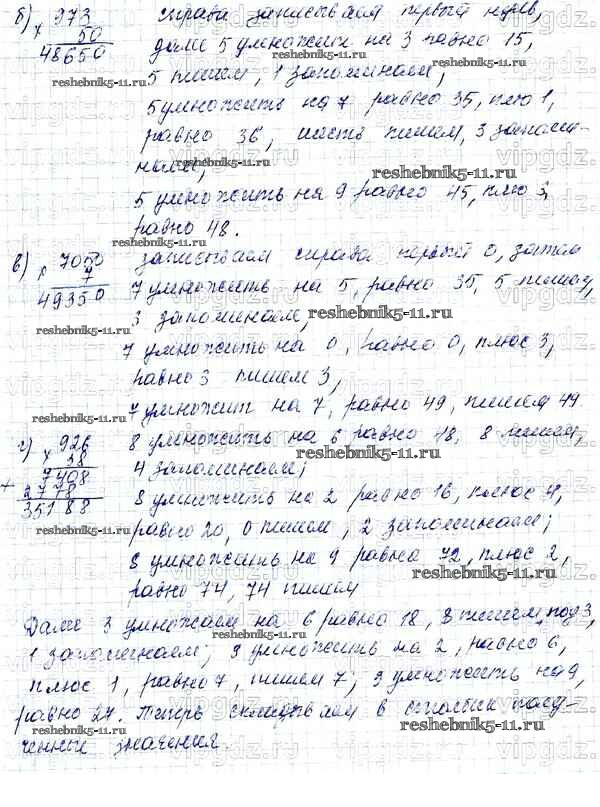 б) × 973 справа записываем первый нуль,
50 далее 5 умножить на 3 равно 15,
48650 5 пишем, 1 запоминаем,
5 умножить на 7 равно 35, плюс 1,
равно 36, шесть пишем, 3 запоми-
наем,
reshebnik5-11.ru
5 умножить на 9 равно 45, плюс 3,
равно 48.
в) × 7050 записываем справа первый 0, затем
7 7 умножить на 5, равно 35, 5 пишем,
49350 3 запоминаем,
reshebnik5-11.ru
reshebnik5-11.ru
7 умножить на 0, равно 0, плюс 3,
равно 3 пишем 3,
7 умножит на 7, равно 49, пишем 49.
reshebnik5-11.ru
г) × 926 8 умножить на 6 равно 48, 8 пишем,
38 4 запоминаем;
reshebnik5-11.ru
+ 7408 8 умножить на 2 равно 16, плюс 4,
2778
35188 равно 20, 0 пишем, 2 запоминаем;
reshebnik5-11.ru
8 умножить на 9 равно 72, плюс 2,
равно 74, 74 пишем
reshebnik5-11.ru
Далее 3 умножаем на 6 равно 18, 8 пишем под 3,
reshebnik5-11.ru
1 запоминаем; 3 умножить на 2, равно 6,
reshebnik5-11.ru
плюс 1, равно 7, пишем 7; 3 умножить на 9,
равно 27. Теперь складываем в столбик полу-
reshebnik5-11.ru
reshebnik5-11.ru
ченные значения
vipgdz.ru